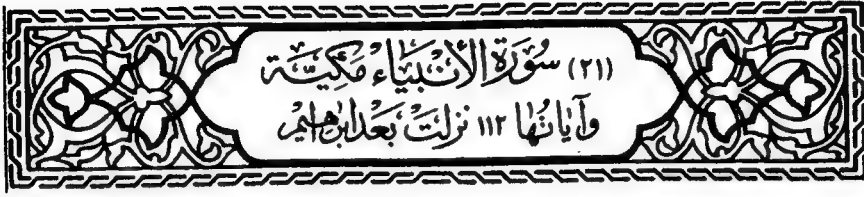 (٢١) سُورَةُ الأَنْبِيَاءِ مَكِيَّة
وَآيَاتُهَا ١١٢ نَزَلَتْ بَعْدَ إِبْرَاهِيم